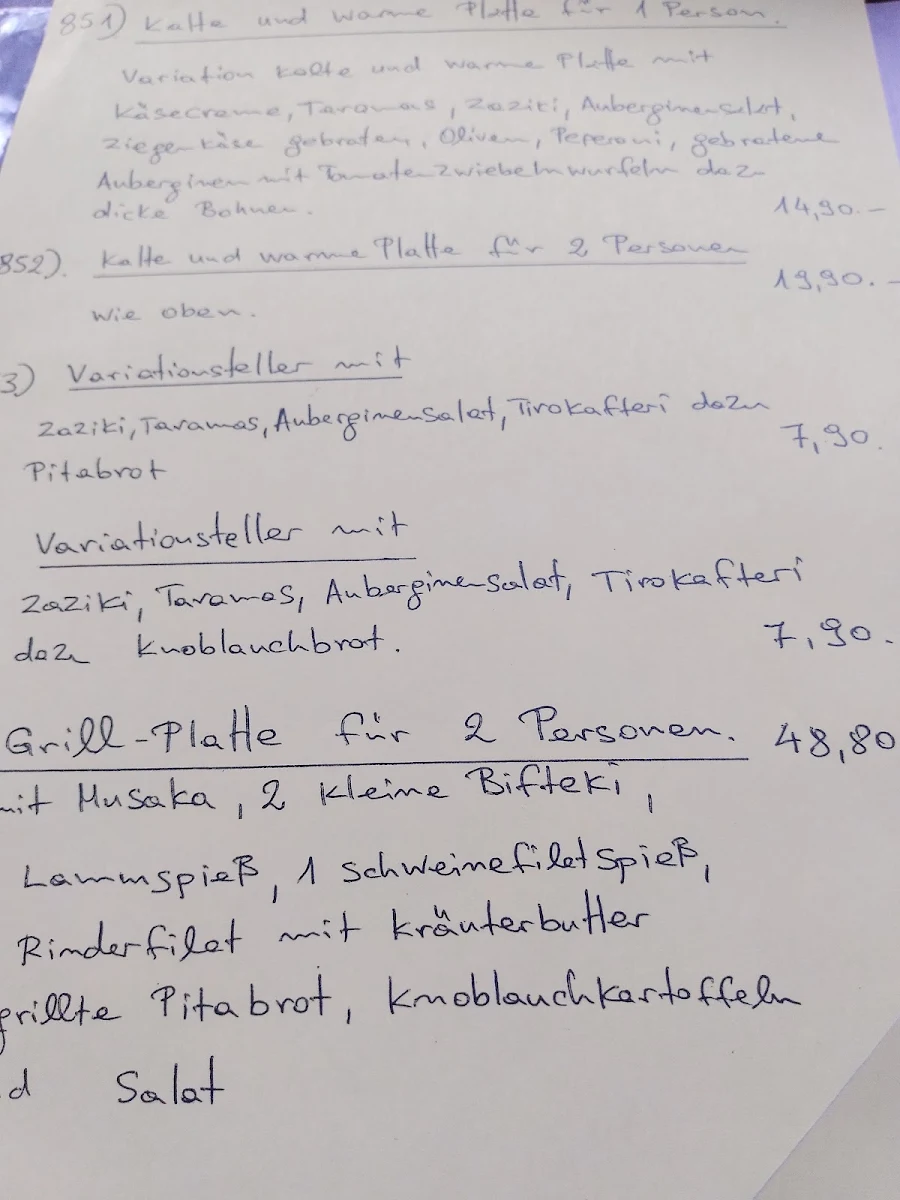 851) Kalte und warme Platte für 1 Person.
Variation kalte und warme Platte mit
Käsecreme, Taramas, Zaziki, Auberginensalat,
Ziegenkäse gebraten, Oliven, Peperoni, gebratene
Auberginen mit Tomatenzwiebelnwürfeln dazu
dicke Bohnen. 14,90.-
852). Kalte und warme Platte für 2 Personen
19,90.-
wie oben.
3) Variationsteller mit
Zaziki, Taramas, Auberginensalat, Tirokafteri dazu
7,90.
Pitabrot
Variationsteller mit
Zaziki, Taramas, Auberginensalat, Tirokafteri
dazu Knoblauchbrot. 7,90.
Grill-Platte für 2 Personen. 48,80
mit Musaka, 2 kleine Bifteki,
Lammspieß, 1 Schweinefiletspieß,
Rinderfilet mit Kräuterbutter
grillte Pitabrot, Knoblauchkartoffeln
d Salat